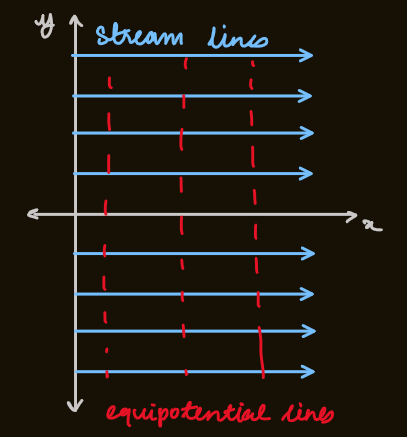 y
stream lines
x
equipotential lines